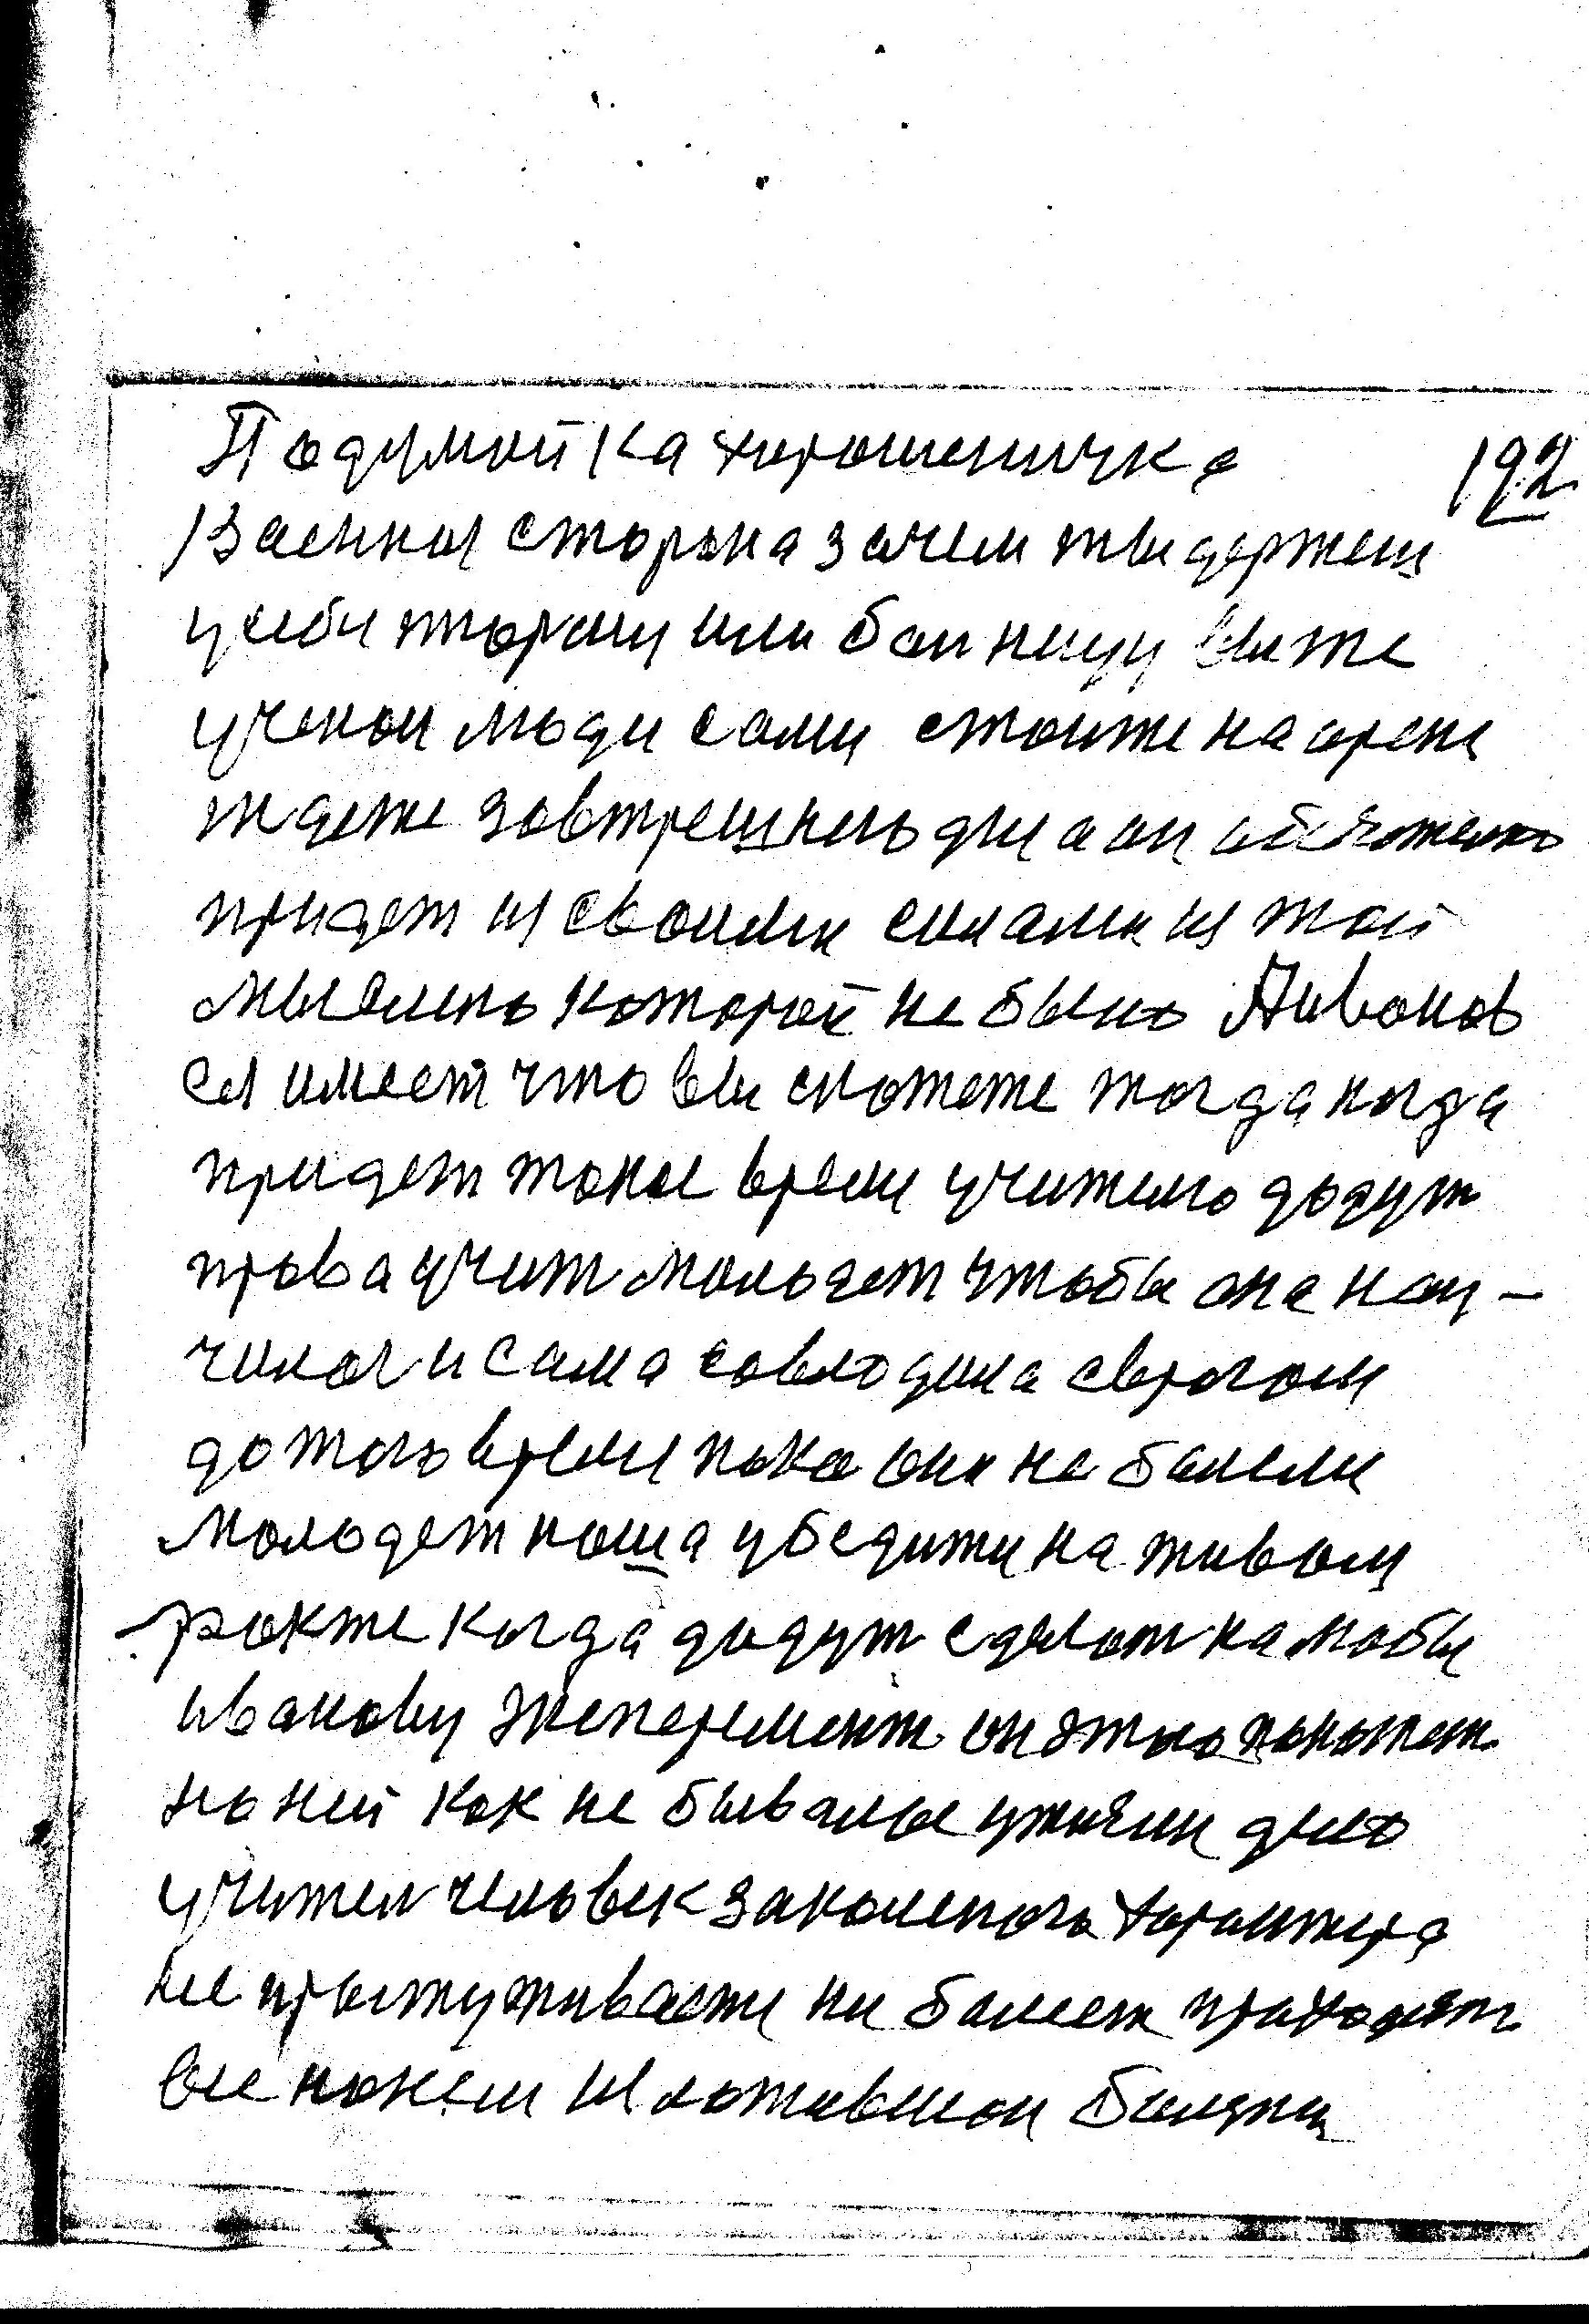 Подумой ка хорошеничка
192
Ваеная сторона зачем ты держеш
у себи тюрму или болницу вы же
ученои люди сами стоите на арене
ждете завтрешнего дня а он обезательно
придет из своими силами из той
мыслию которой не было А Иванов
ся имеет что вы скожете тогда когда
придет такое время учителю додут
права учит молодеж чтобы она нау-
чилася и сама совлодила сврогом
до того время пока они не болели
Молодеж ноша убедити на живом
факте когда додут сделот на тобы
иванову эксперемент он этого покожет
на ней как не бывалые ужизни дело
учител человек закаленого характера
не простуживаети ни болеет приходят
вы покем и ложившои болезни